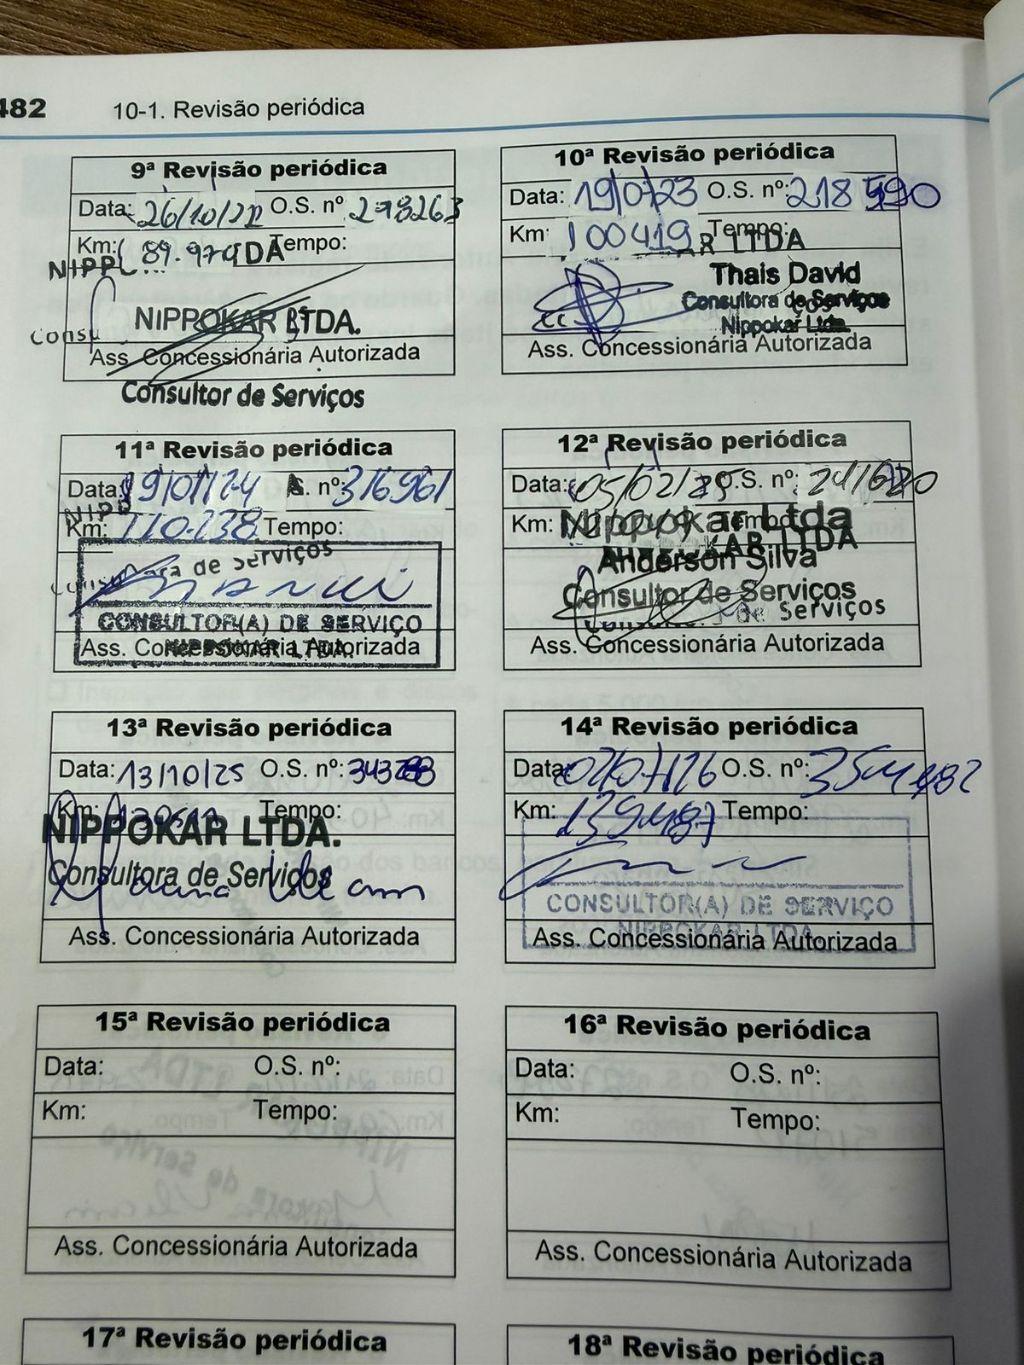 482 10-1. Revisão periódica
9ª Revisão periódica
Data: 26/10/22 O.S. nº 278263
Km: 89.979 Tempo:
NIPPOKAR LTDA.
Ass. Concessionária Autorizada
Consultor de Serviços
10ª Revisão periódica
Data: 19/07/23 O.S. nº: 218590
Km: 100419 Tempo:
AR LTDA
Thais David
Consultora de Serviços
Nippokar Ltda.
Ass. Concessionária Autorizada
11ª Revisão periódica
Data: 19/01/24 S. nº: 316961
Km: 110.238 Tempo:
de Serviços
CONSULTOR(A) DE SERVIÇO
NIPPOKAR LTDA.
Ass. Concessionária Autorizada
12ª Revisão periódica
Data: 05/02/25 O.S. nº:
Km: Tempo:
Nippokar Ltda
NIPPOKAR LTDA
Anderson Silva
Consultor de Serviços
de Serviços
Ass. Concessionária Autorizada
13ª Revisão periódica
Data: 13/10/25 O.S. nº:
Km: Tempo:
NIPPOKAR LTDA.
Consultora de Serviços
Ass. Concessionária Autorizada
14ª Revisão periódica
Data: 02/07/26 O.S. nº:
Km: 139487 Tempo:
CONSULTOR(A) DE SERVIÇO
NIPPOKAR LTDA
Ass. Concessionária Autorizada
15ª Revisão periódica
Data: O.S. nº:
Km: Tempo:
Ass. Concessionária Autorizada
16ª Revisão periódica
Data: O.S. nº:
Km: Tempo:
Ass. Concessionária Autorizada
17ª Revisão periódica
18ª Revisão periódica